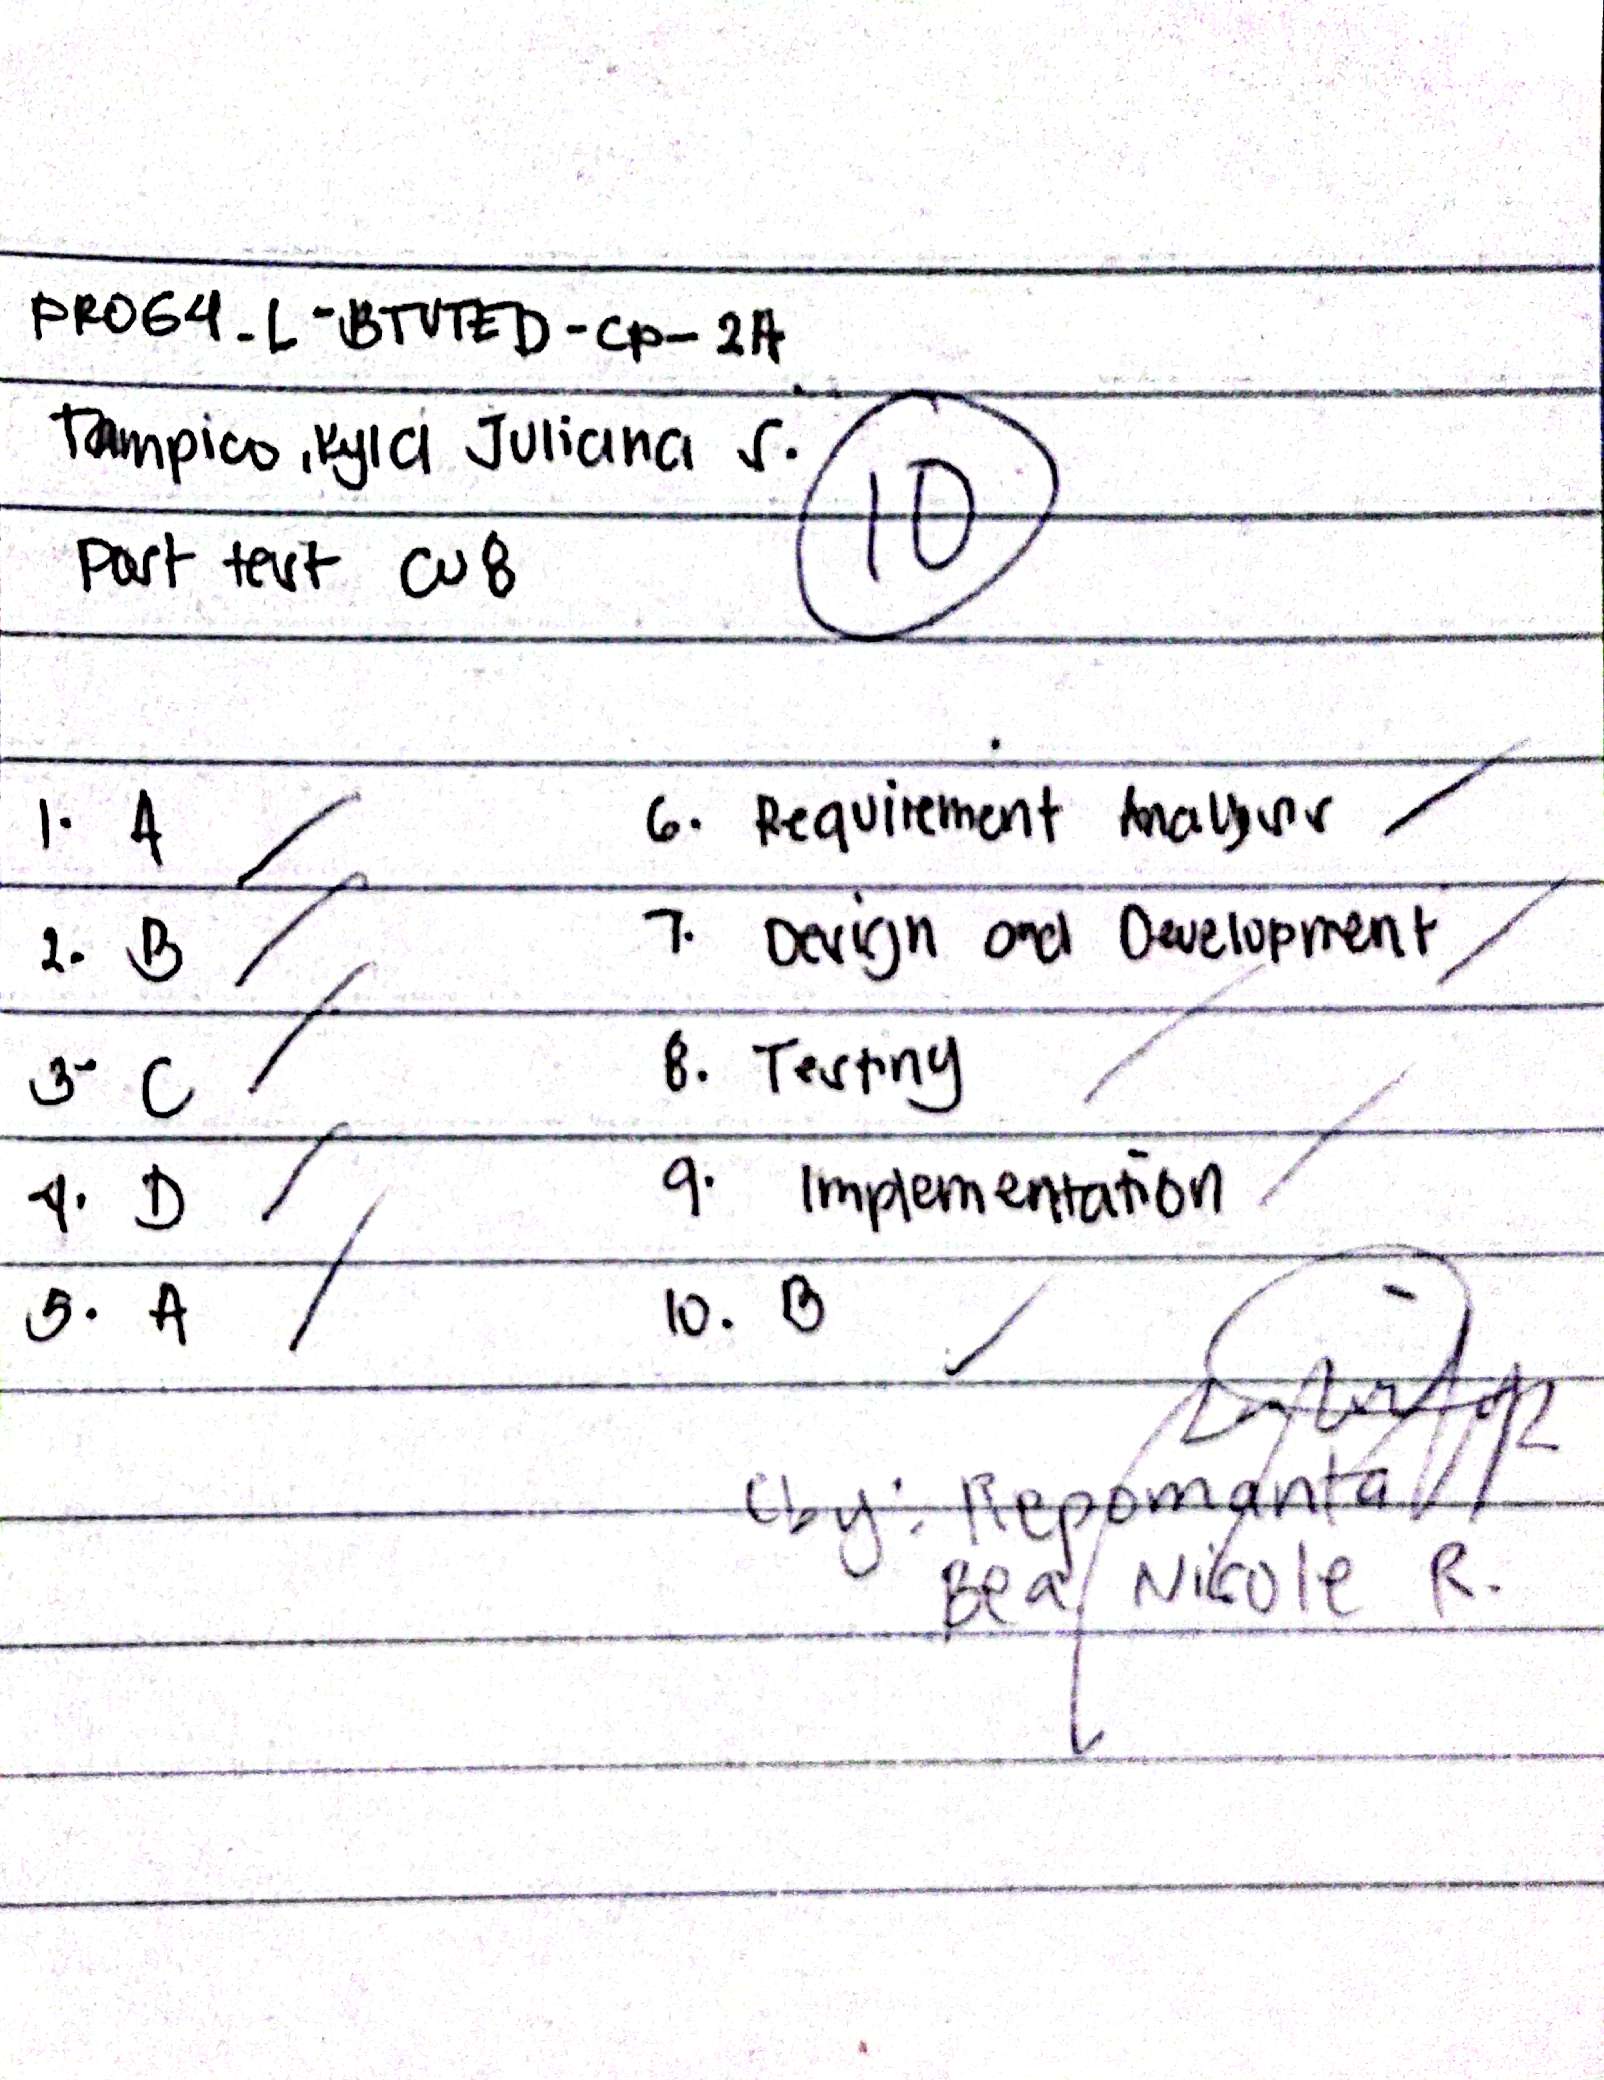 PROG4-L-BTVTED-CP-2A
Tampico, Kyla Juliana S.
10
Post test CU8
1. A
2. B
3- C
4. D
5. A
6. Requirement Analysis
7. Design and Development
8. Testing
9. Implementation
10. B
Cby: Repomanta
Bea Nicole R.